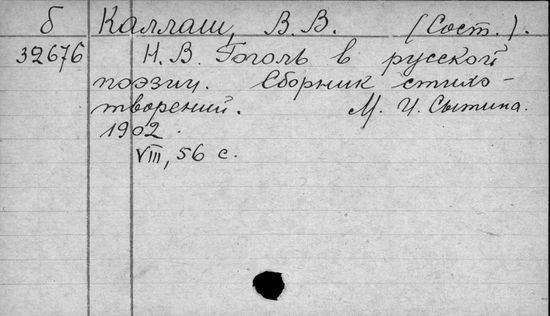 б Каллаш, В. В. (Сост.).
32676 Н. В. Гоголь в русской
поэзии. Сборник стихо-
творений. М. И. Сытина.
1902.
VIII, 56 с.